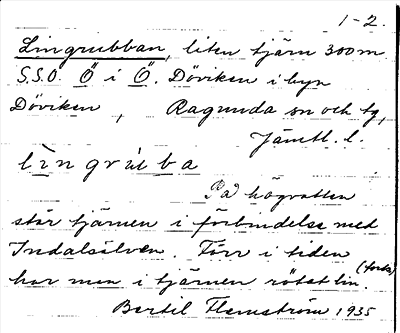 1-2.
Lingrubban, liten tjärn 300 m
S.S.O. Ö i Ö. Döviken i byn
Döviken, Ragunda sn och tg,
Jämtl. l.
lìngrúb̀ba
På högvatten
står tjärnen i förbindelse med
Indalsälven. Förr i tiden
har man i tjärnen rötat lin (forts)
Bertil Flemström 1935